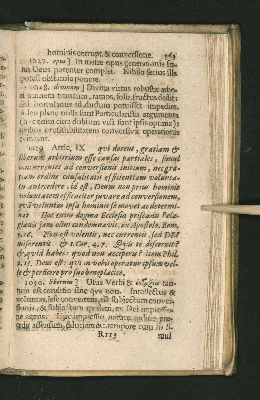 hominis corrupt. & conversione. 965
1027. opus] In nature opus generationis fœ-
tus Deus potenter complet. Nihilo secius illa
potest obstaculo ponere.
1028. divinam] Divina virtus robustæ arbo-
ri connectit truncum, ramos, folia, fructus dedit:
sed hortulanus id dudum potuisset impedire.
Adeo plane nulla sunt Particularistis argumenta
(in omnia citra dubium visa sunt ipsis optima)
quibus irresistibilitatem conversivæ operationis
evincant.
1029. Artic. IX. qui docent, gratiam &
liberum arbitrium esse causas partiales, simul
concurrentes ad conversionis initium, nec gra-
tiam ordine causalitatis efficientiam volunta-
tis antecedere id est, Deum non prius hominis
voluntatem efficaciter juvare ad conversionem,
quam voluntas ipsa hominis se movet ac determi-
nat. Hoc enim dogma Ecclesia prisca in Pela-
gianis jam olim condemnavit, ex Apostolo. Rom.
9, 16. Non est volentis, nec currentis, sed DEI
miserentis & 1 Cor. 4, 7. Quis te discernit?
& quid habes quod non acceperis? item Phil.
2, 13. Deus est: qui in vobis operatur ipsum vel-
le & perficere pro suo beneplacito.
1030. liberum] Usus Verbi & tan-
tum est conditio sine qua non. Intellectus &
voluntas, sese convertens, est subjectum conver-
sionis, & subjectum quidem, ex Dei impressio-
ne agens.
quædam adsensum, fiduciam &c. tempore cum iis si-
Rrr3 mul